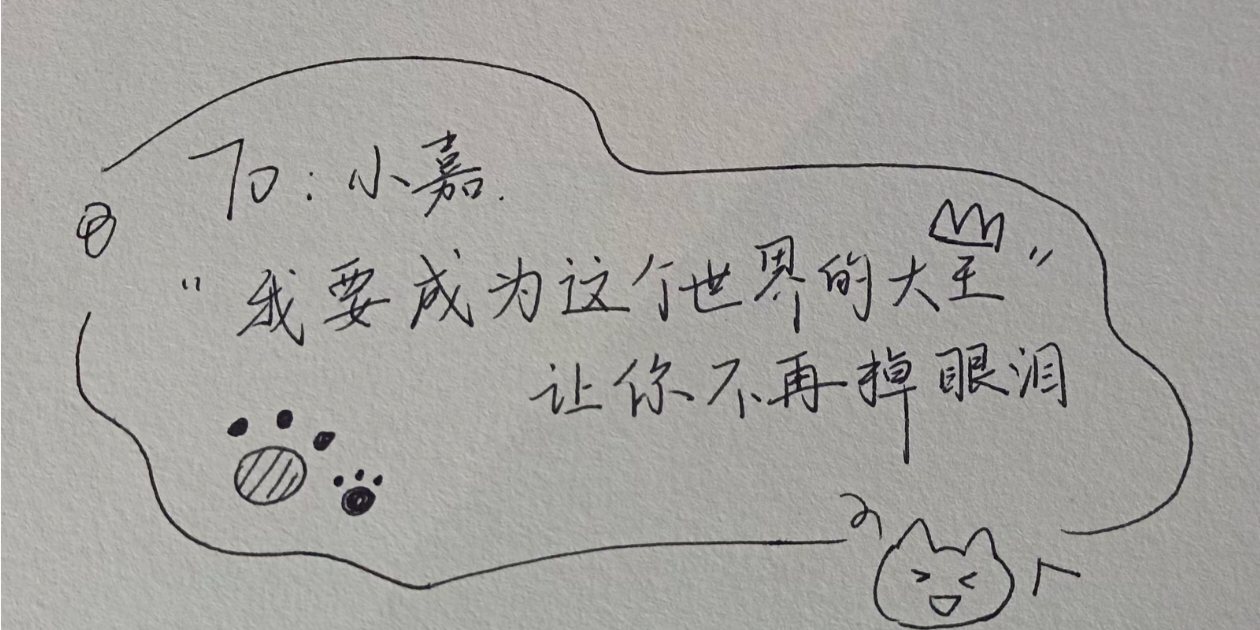 To：小嘉.
“我要成为这个世界的大王”
让你不再掉眼泪